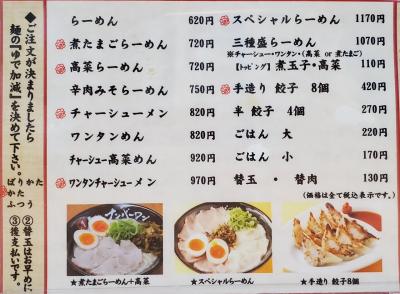 ◆ご注文が決まりましたら
麺の『ゆで加減』を決めて下さい。
ばりかた
かた
ふつう
◆②替玉はお早めに
③後支払いです。
らーめん 620円
煮たまごらーめん 720円
高菜らーめん 720円
辛肉みそらーめん 750円
チャーシューメン 820円
ワンタンめん 820円
チャーシュー高菜めん 920円
ワンタンチャーシューメン 970円
スペシャルらーめん 1170円
三種盛らーめん 1070円
※チャーシュー・ワンタン・(高菜 or 煮たまご)
【トッピング】煮玉子・高菜 110円
手造り 餃子 8個 420円
半 餃子 4個 270円
ごはん 大 220円
ごはん 小 170円
替玉 ・ 替肉 130円
(価格は全て税込表示です。)
ナンバーワン
★煮たまごらーめん+高菜
★スペシャルらーめん
★手造り 餃子8個